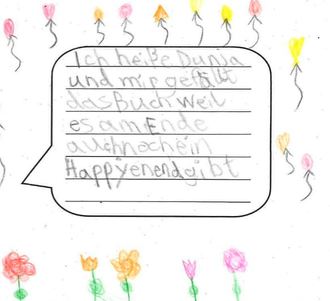 Ich heiße Dunja
und mir gefällt
das Buch weil
es am Ende
auch noch ein
Happyenend gibt